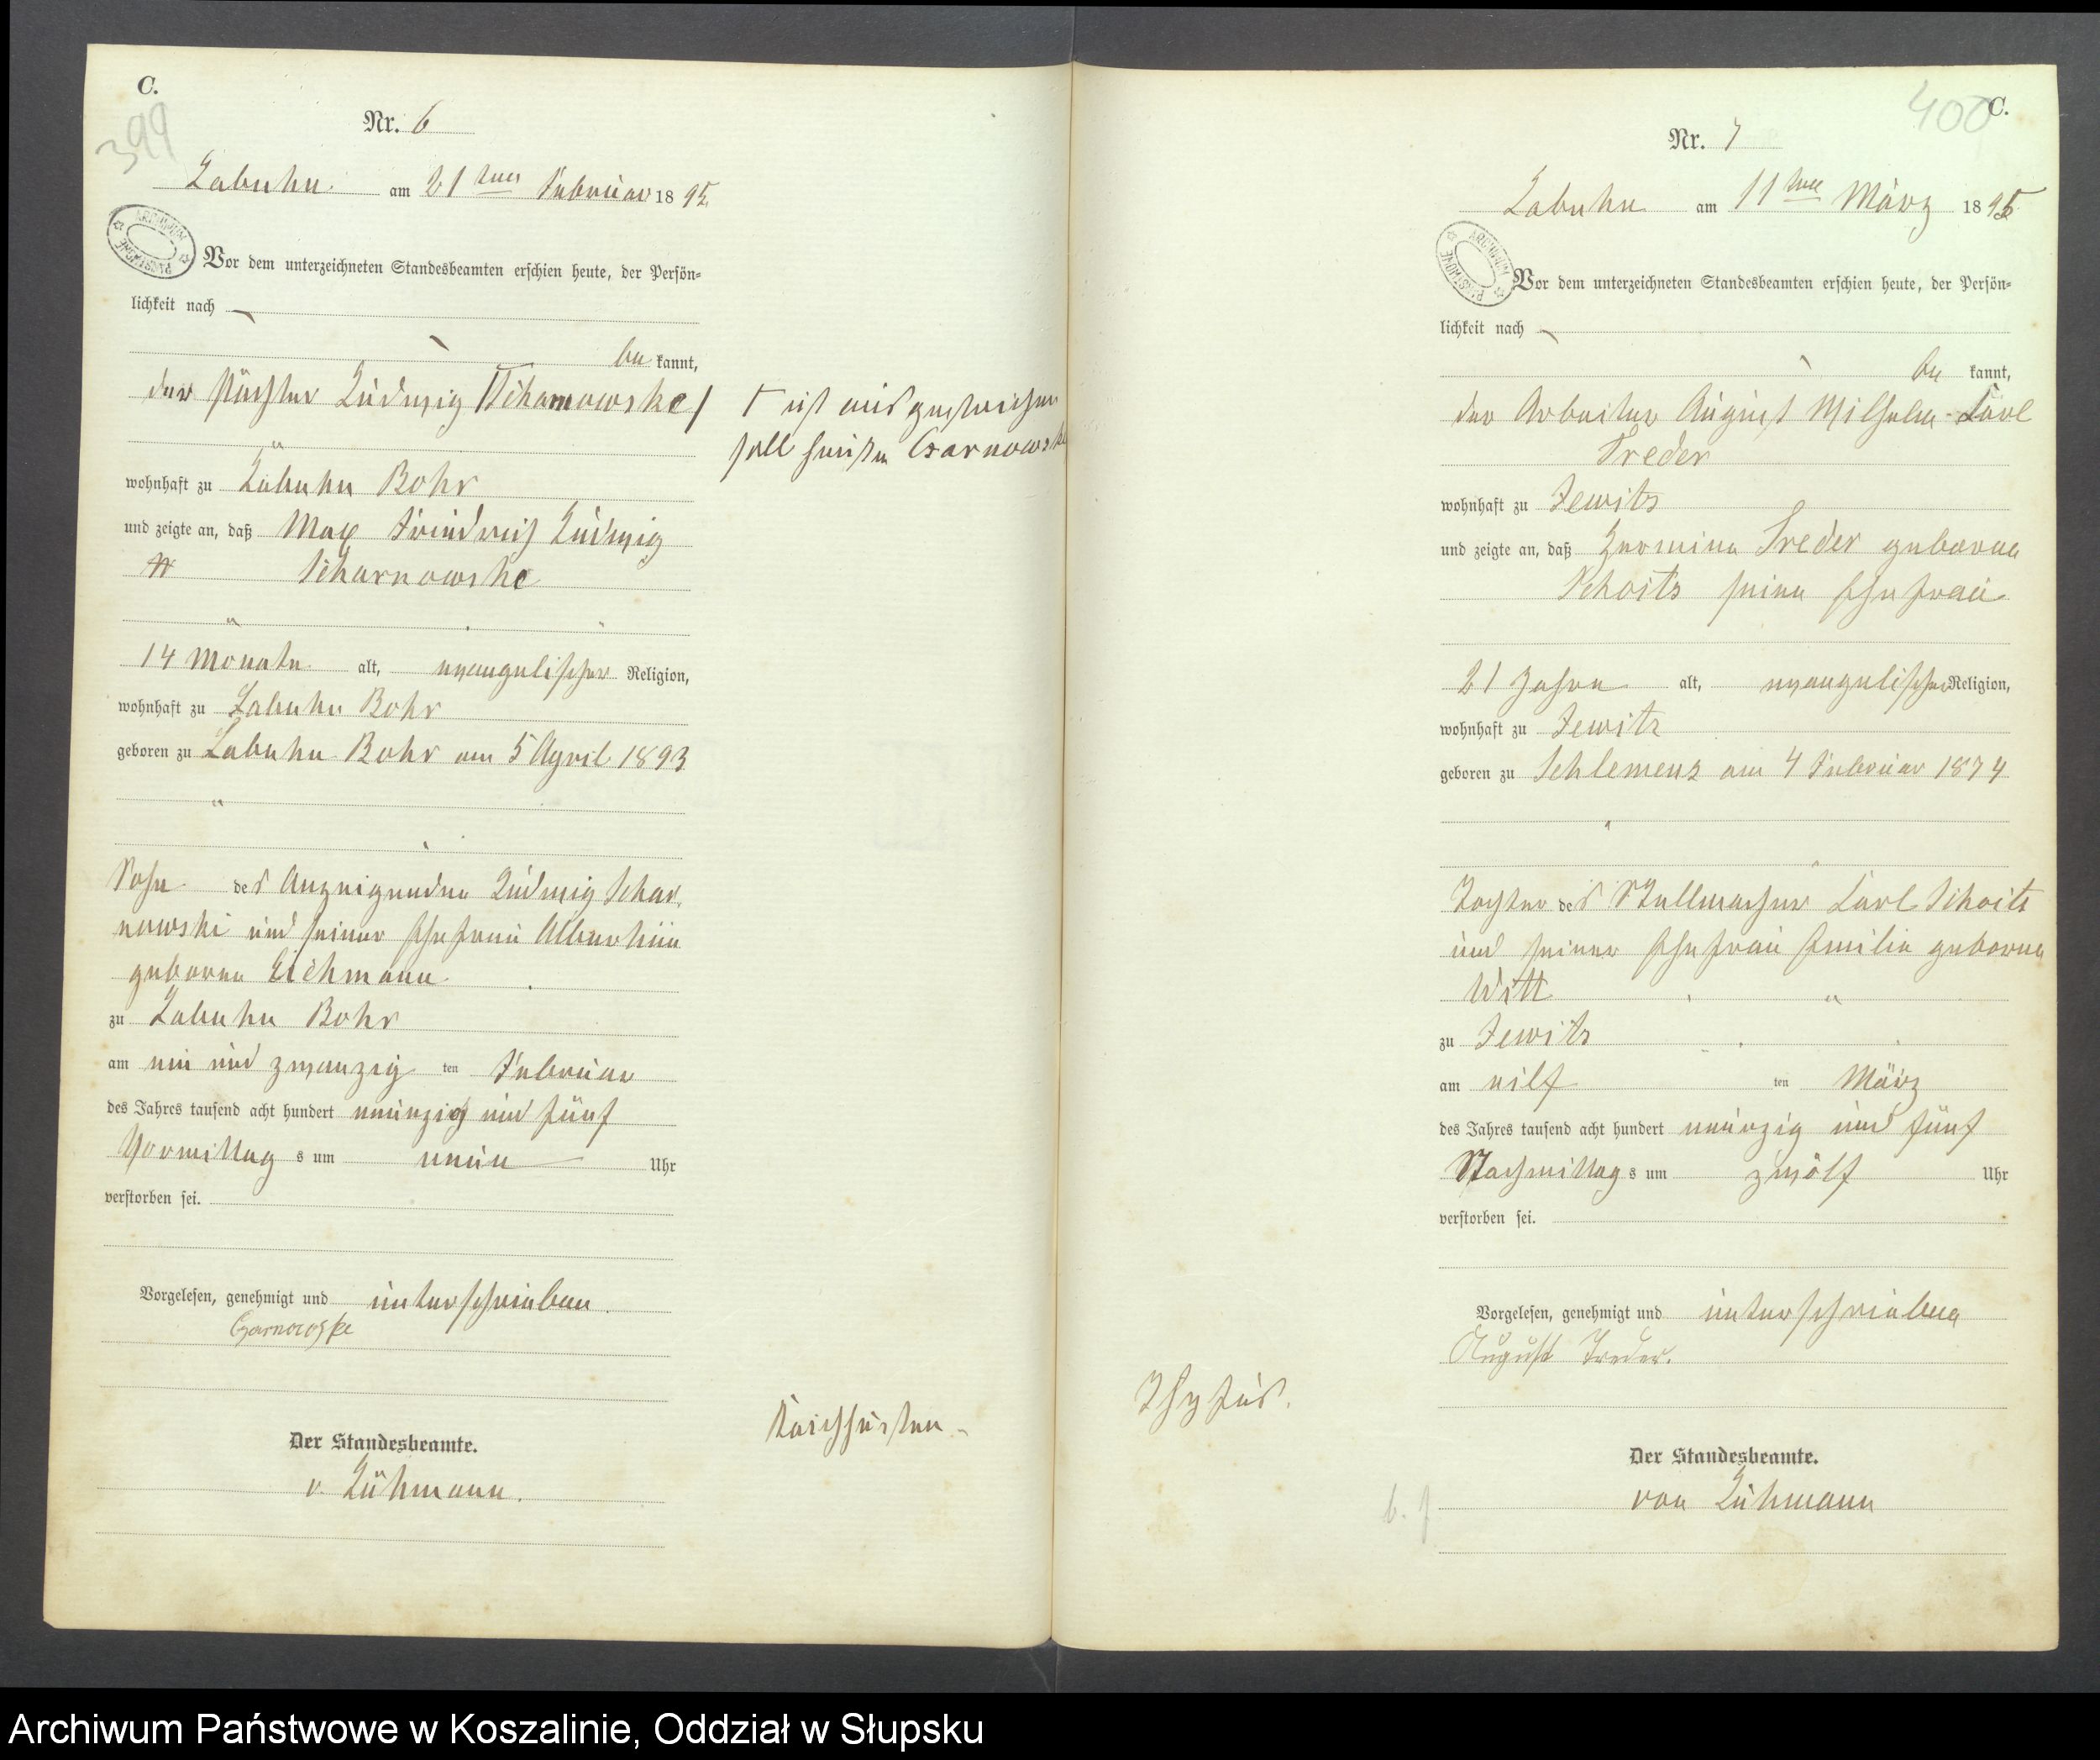 C.
399
Nr. 6
Labuhn am 21ten Februar 1895.
ARCHIWUM PAŃSTWOWE
Vor dem unterzeichneten Standesbeamten erschien heute, der Persön-
lichkeit nach
be kannt,
der Pächter Ludwig Scharnowske
wohnhaft zu Labuhn Bohr
und zeigte an, daß Max Friedrich Ludwig
Scharnowske
14 Monate alt, evangelischer Religion,
wohnhaft zu Labuhn Bohr
geboren zu Labuhn Bohr am 5 April 1893
Sohn des Anzeigenden Ludwig Schar,
nowski und seiner Ehefrau Albertine
geborne Eichmann
zu Labuhn Bohr
am ein und zwanzig ten Februar
des Jahres tausend acht hundert neunzig und fünf
Vormittag s um neun Uhr
verstorben sei.
Vorgelesen, genehmigt und unterschrieben.
Czarnowske
Der Standesbeamte.
v. Lühmann.
ist ausgestrichen
soll heißen Czarnowske
Keichhusten
400
C.
Nr. 7
Labuhn am 11ten März 1895
ARCHIWUM PAŃSTWOWE
Vor dem unterzeichneten Standesbeamten erschien heute, der Persön-
lichkeit nach
be kannt,
der Arbeiter August Wilhelm Carl
Treder
wohnhaft zu Jewitz
und zeigte an, daß Hermine Treder geborene
Schoitz seine Ehefrau
21 Jahre alt, evangelischer Religion,
wohnhaft zu Jewitz
geboren zu Schlemenz am 4 Februar 1874
Tochter des Stellmacher Carl Schoitz
und seiner Ehefrau Emilie geborne
Witt
zu Jewitz
am eilf ten März
des Jahres tausend acht hundert neunzig und fünf
Nachmittag s um zwölf Uhr
verstorben sei.
Vorgelesen, genehmigt und unterschrieben
August Treder.
Thyfus.
Der Standesbeamte.
von Lühmann
Archiwum Państwowe w Koszalinie, Oddział w Słupsku